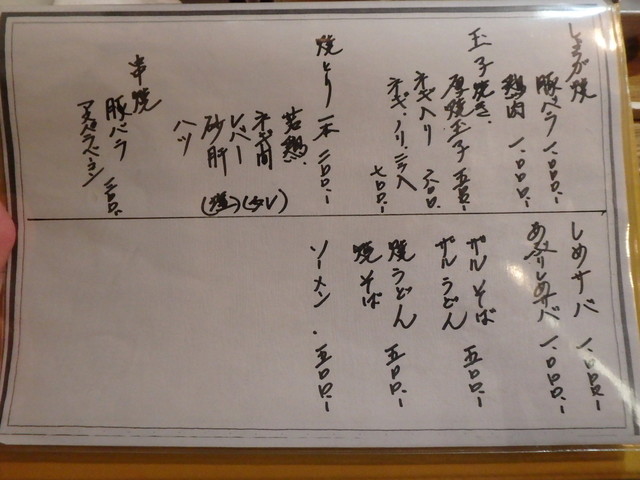 しょうが焼
豚バラ 一、〇〇〇.-
鶏肉 一、〇〇〇.-
玉子焼き.
厚焼玉子 五〇〇.-
ネギ入り 六〇〇.
ネギ、ノリ、ニラ入 七〇〇.-
焼とり 一本 二〇〇.-
若鶏.
ネギ間
レバー (タレ)
砂肝 (塩)
ハツ
串焼
豚バラ 二〇〇.
アスパラベーコン
しめサバ 一、〇〇〇.-
あぶりしめサバ 一、〇〇〇.-
ザルそば 五〇〇.-
ザルうどん
焼うどん 五〇〇.-
焼そば
ソーメン . 五〇〇.-